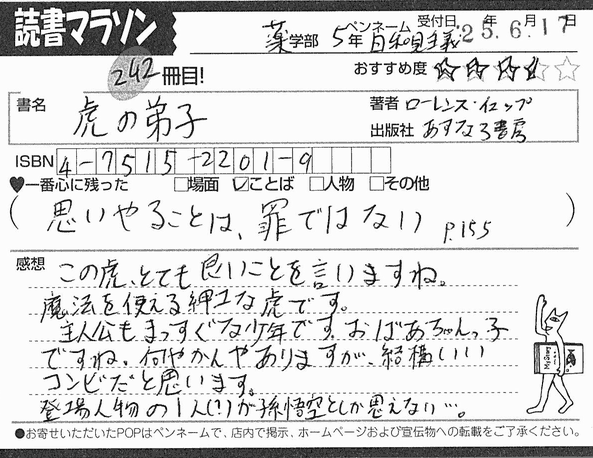 読書マラソン
薬学部 5年 ペンネーム 日和見主義 受付日 '25年6月17日
242冊目!
おすすめ度 ☆☆☆☆☆
書名 虎の弟子
著者 ローレンス・イェップ
出版社 あすなろ書房
ISBN 4-7515-2201-9
♥一番心に残った □場面 ☑ことば □人物 □その他
(思いやることは、罪ではない P.155)
感想 この虎、とても良いことを言いますね。
魔法を使える紳士な虎です。
主人公もまっすぐな少年です。おばあちゃんっ子
ですね。何やかんやありますが、結構いい
コンビだと思います。
登場人物の1人(?)が孫悟空としか思えない…。
●お寄せいただいたPOPはペンネームで、店内で掲示、ホームページおよび宣伝物への転載をご了承ください。